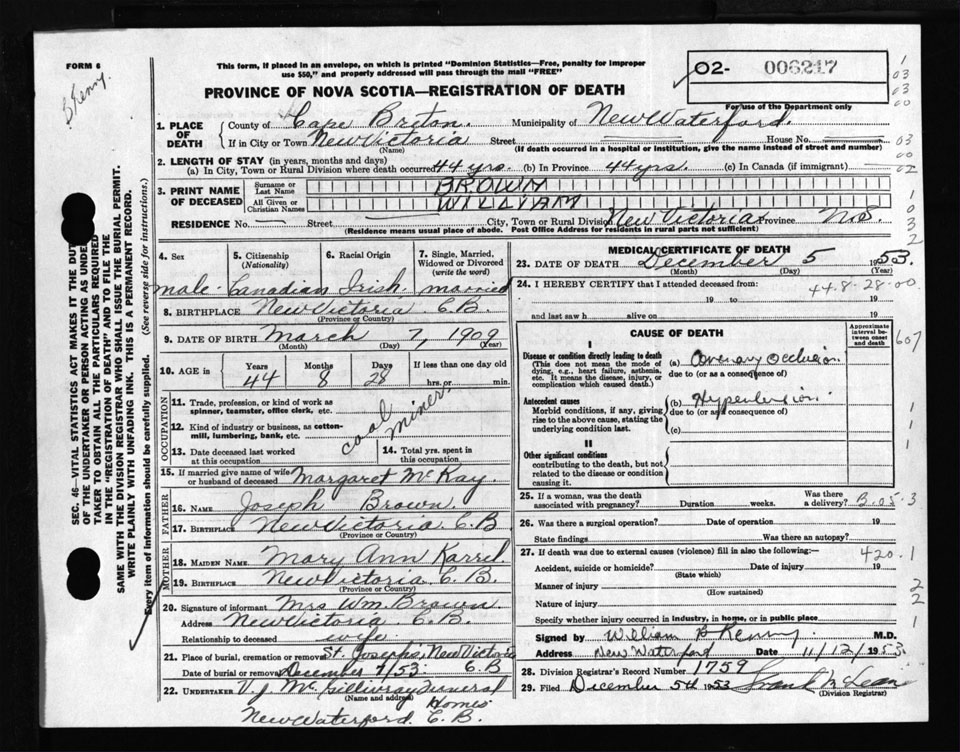 FORM 6
B Kenny.
This form, if placed in an envelope, on which is printed "Dominion Statistics—Free, penalty for improper
use $50," and properly addressed will pass through the mail "FREE"
02- 006217
PROVINCE OF NOVA SCOTIA—REGISTRATION OF DEATH
For use of the Department only
1. PLACE OF DEATH
County of Cape Briton. Municipality of New Waterford.
If in City or Town New Victoria Street House No.
(Name) (If death occurred in a hospital or institution, give the name instead of street and number)
2. LENGTH OF STAY (in years, months and days)
(a) In City, Town or Rural Division where death occurred 44 yrs. (b) In Province 44 yrs. (c) In Canada (if immigrant)
3. PRINT NAME OF DECEASED
Surname or Last Name BROWN
All Given or Christian Names WILLIAM
RESIDENCE No. Street City, Town or Rural Division New Victoria Province N.S.
(Residence means usual place of abode. Post Office Address for residents in rural parts not sufficient)
4. Sex
male
5. Citizenship (Nationality)
Canadian
6. Racial Origin
Irish
7. Single, Married, Widowed or Divorced (write the word)
married
8. BIRTHPLACE New Victoria C.B.
(Province or Country)
9. DATE OF BIRTH March 7, 1909
(Month) (Day) (Year)
10. AGE in Years Months Days If less than one day old
44 8 28 hrs. or min.
OCCUPATION
11. Trade, profession, or kind of work as spinner, teamster, office clerk, etc.
12. Kind of industry or business, as cotton-mill, lumbering, bank, etc.
coal miner
13. Date deceased last worked at this occupation
14. Total yrs. spent in this occupation
15. If married give name of wife or husband of deceased Margaret McKay.
FATHER
16. NAME Joseph Brown.
17. BIRTHPLACE New Victoria C.B
(Province or Country)
MOTHER
18. MAIDEN NAME Mary Ann
19. BIRTHPLACE New Victoria C.B.
(Province or Country)
20. Signature of informant Mrs Wm. Brown
Address New Victoria C.B.
Relationship to deceased wife.
21. Place of burial, cremation or removal St. Josephs, New Victoria
Date of burial or removal December 7/53 C.B
22. UNDERTAKER V.J McGillivray Funeral Homes
(Name and address)
New Waterford. C.B.
MEDICAL CERTIFICATE OF DEATH
23. DATE OF DEATH December 5 1953.
(Month) (Day) (Year)
24. I HEREBY CERTIFY that I attended deceased from:
44.8-28-00
19 to 19
and last saw h alive on 19
CAUSE OF DEATH
Approximate interval between onset and death
I
Disease or condition directly leading to death
(This does not mean the mode of dying, e.g., heart failure, asthenia, etc. It means the disease, injury, or complication which caused death.)
(a) Coronary Occlusion.
due to (or as a consequence of)
Antecedent causes
Morbid conditions, if any, giving rise to the above cause, stating the underlying condition last.
(b) Hypertension.
due to (or as a consequence of)
(c)
II
Other significant conditions
contributing to the death, but not related to the disease or condition causing it.
25. If a woman, was the death associated with pregnancy? Duration weeks. Was there a delivery? B-05-3
26. Was there a surgical operation? Date of operation 19
State findings Was there an autopsy?
27. If death was due to external causes (violence) fill in also the following:—
420.1
Accident, suicide or homicide? Date of injury 19
(State which)
Manner of injury
(How sustained)
Nature of injury
Specify whether injury occurred in industry, in home, or in public place
Signed by William B Kenny, M.D.
Address New Waterford Date 11/12/1953
28. Division Registrar's Record Number 1759
29. Filed December 5th 1953 Frank McLean
(Division Registrar)
SEC. 46—VITAL STATISTICS ACT MAKES IT THE DUTY
OF THE UNDERTAKER OR PERSON ACTING AS UNDER-
TAKER TO OBTAIN ALL THE PARTICULARS REQUIRED
IN THE "REGISTRATION OF DEATH" AND TO FILE THE
SAME WITH THE DIVISION REGISTRAR WHO SHALL ISSUE THE BURIAL PERMIT.
WRITE PLAINLY WITH UNFADING INK. THIS IS A PERMANENT RECORD.
Every item of information should be carefully supplied. (See reverse side for instructions.)
1
03
03
00
03
00
02
1
0
3
2
607
1
1
1
2
2
1